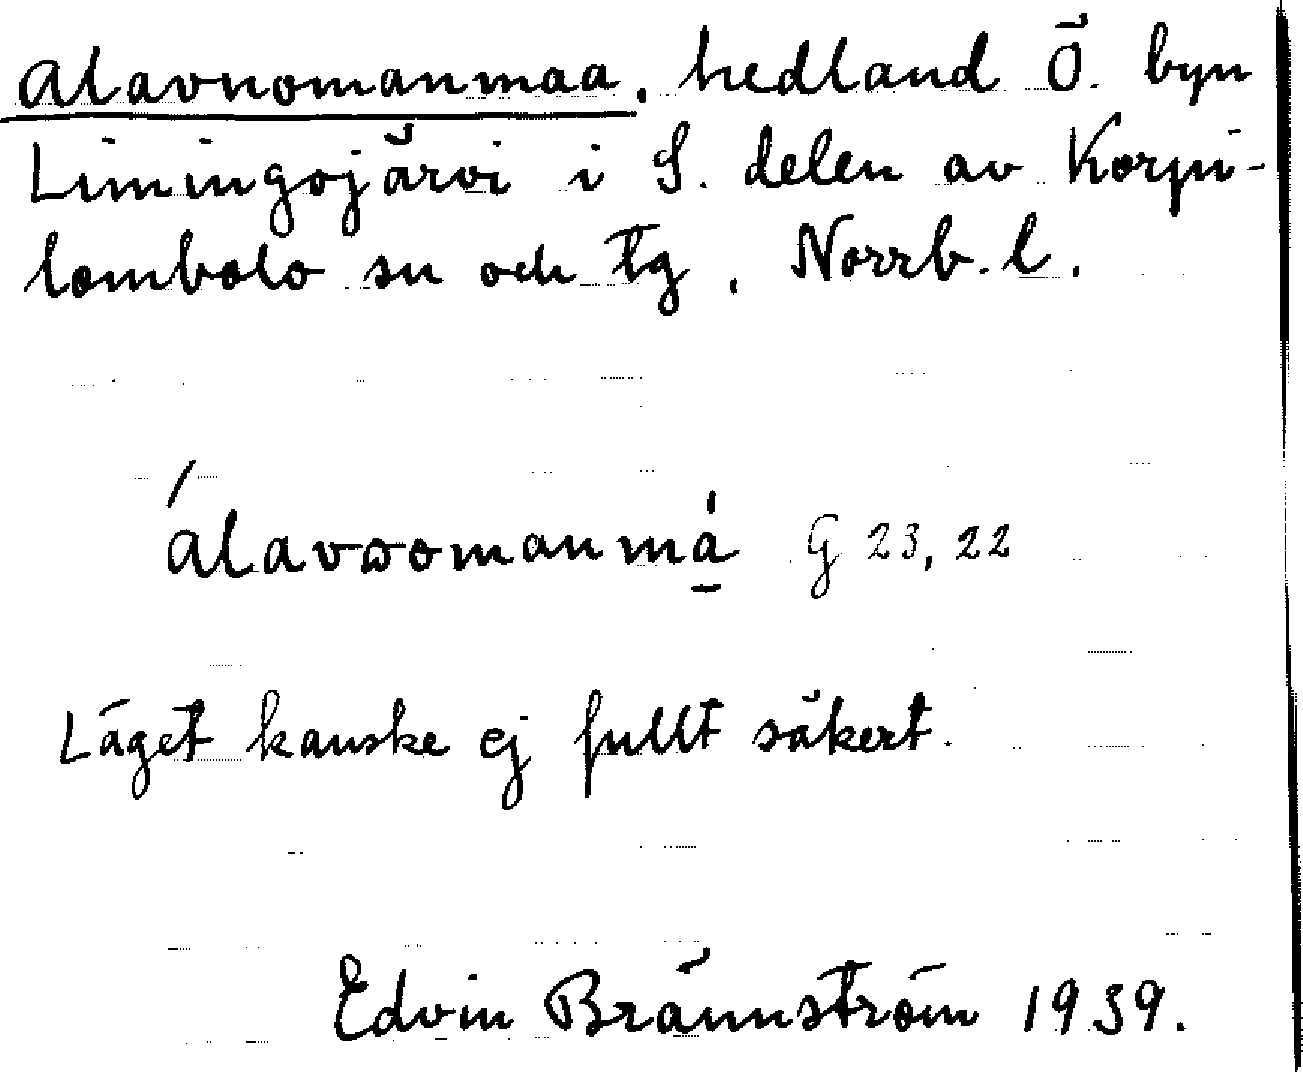 Alavuomanmaa, hedland Ö. byn
Limingojärvi i S. delen av Korpi-
lombolo sn och tg, Norrb. l.
álavωomanmá̱ G 23, 22
Läget kanske ej fullt säkert.
Edvin Brännström 1939.